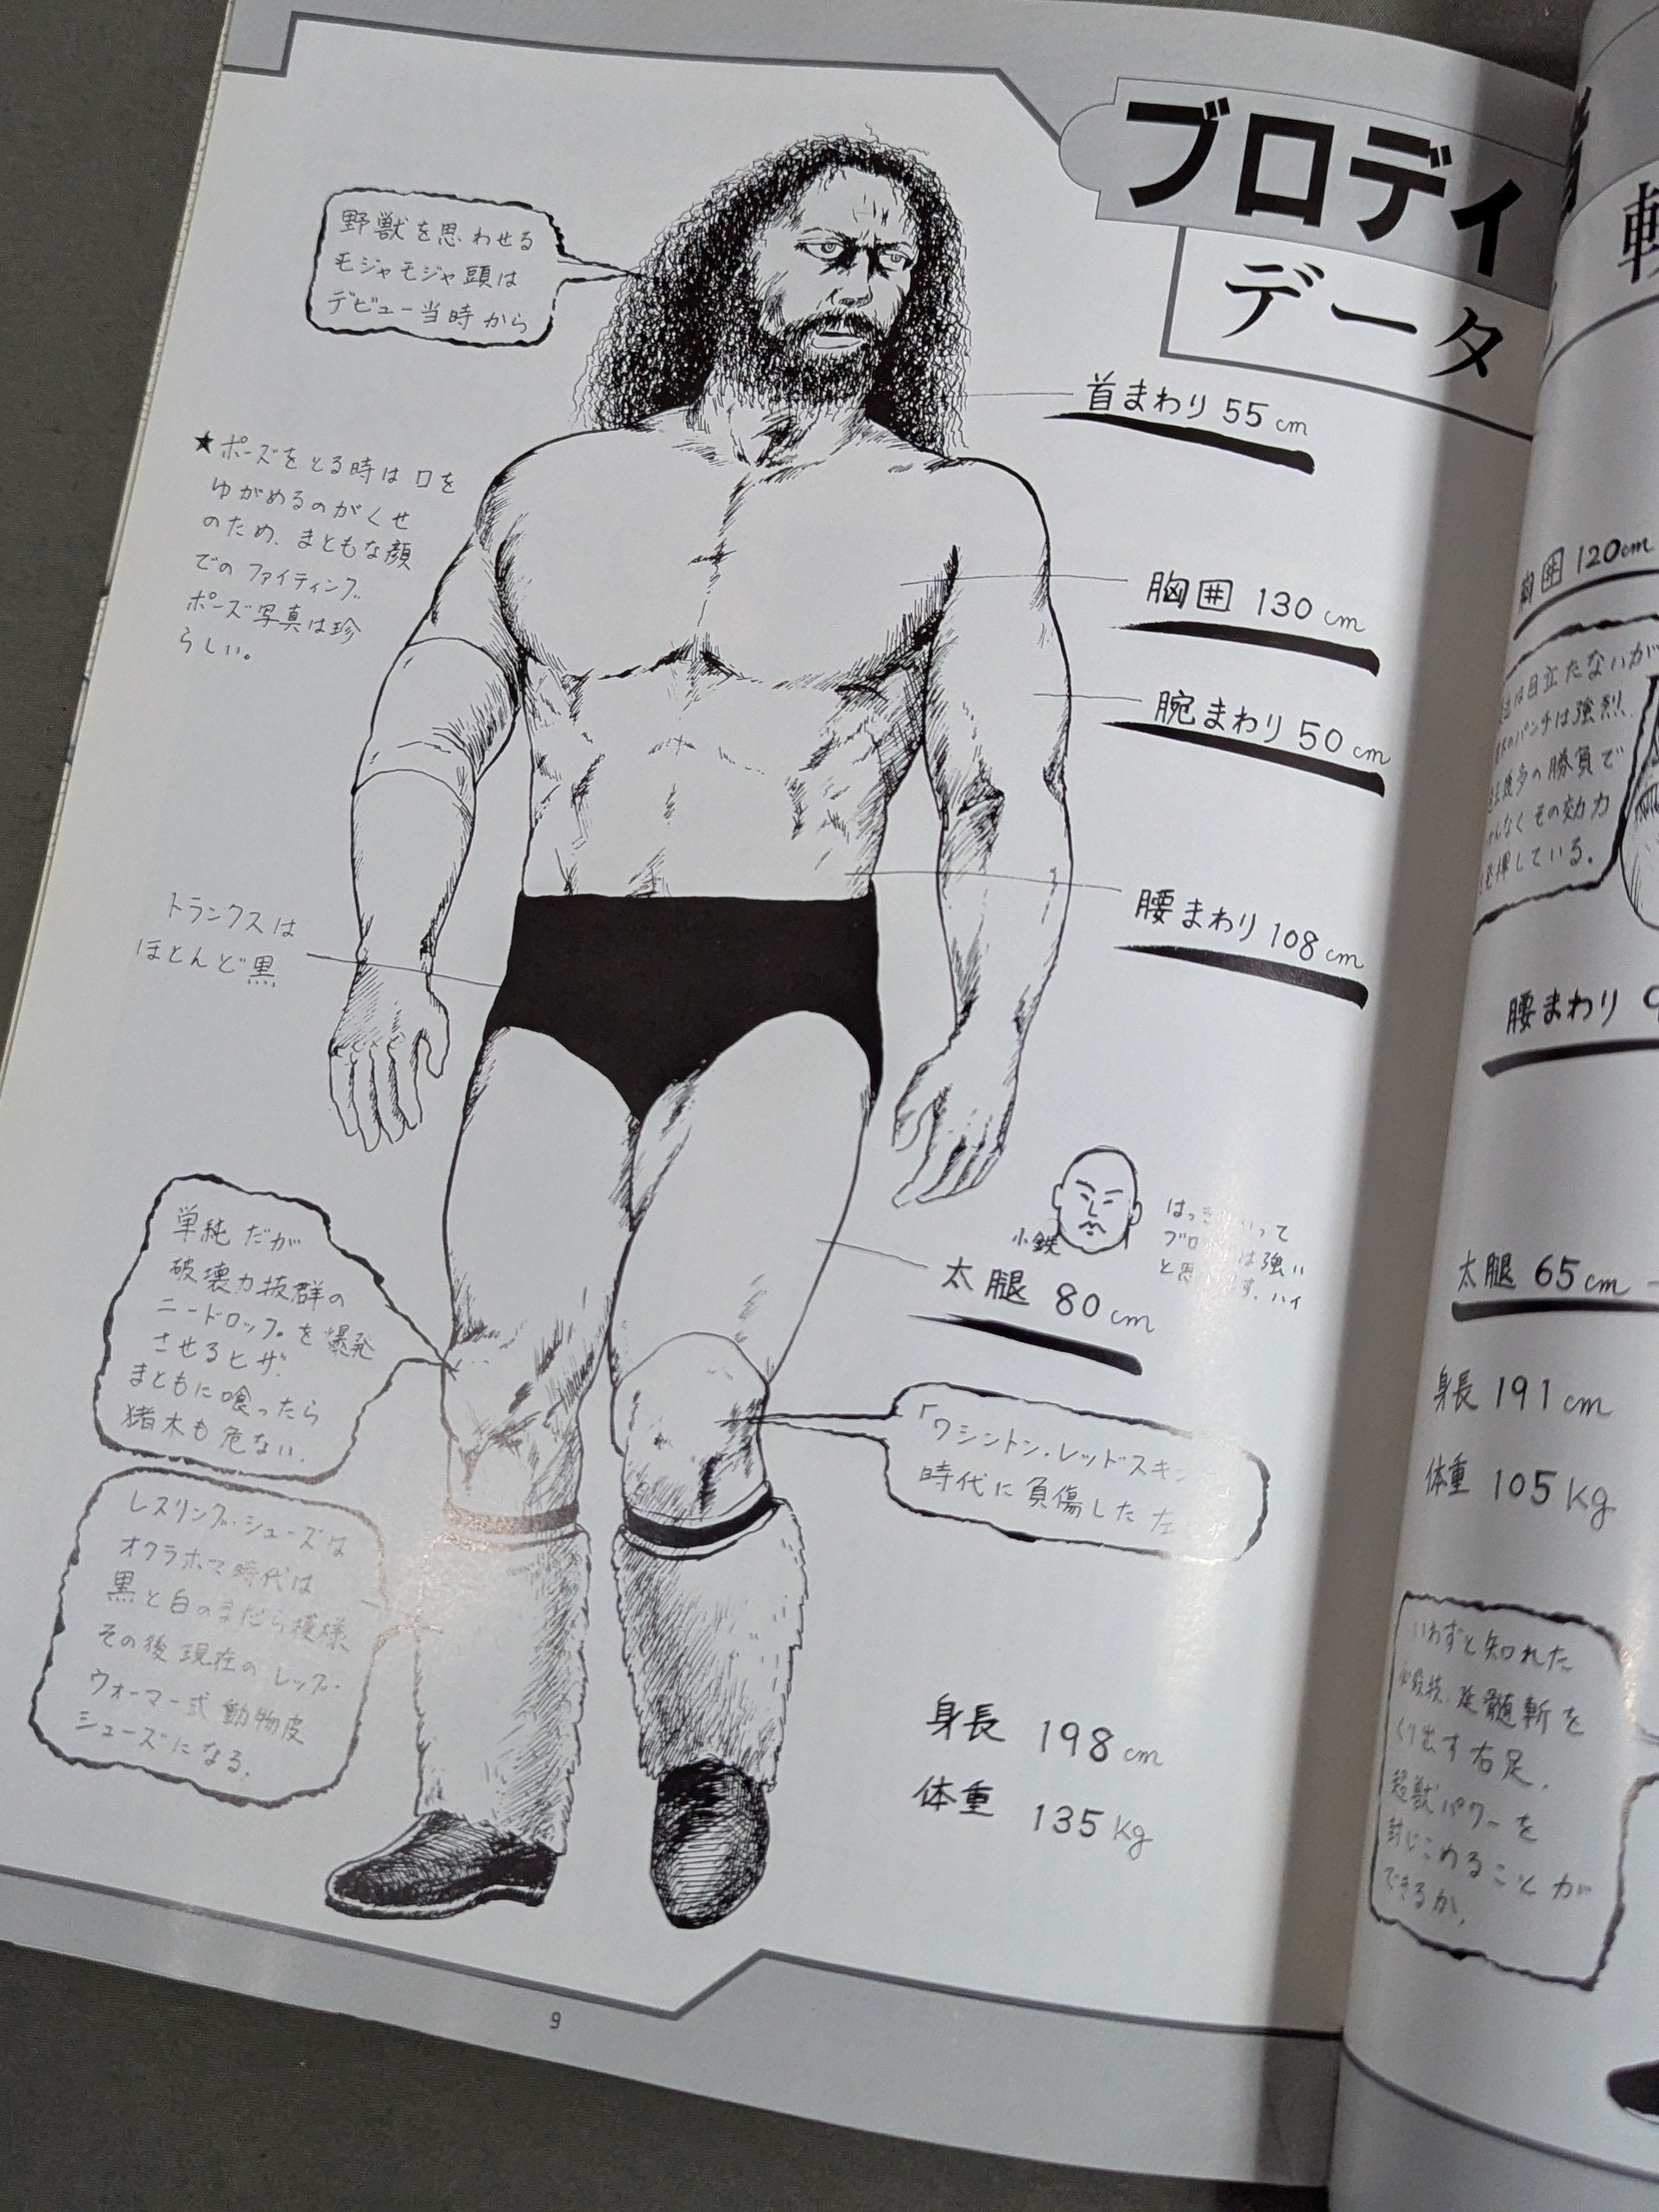 ブロディ
データ
野獣を思わせる
モジャモジャ頭は
デビュー当時から
首まわり 55cm
★ポーズをとる時は口を
ゆがめるのがくせ
のため、まともな顔
でのファイティング
ポーズ写真は珍
らしい。
胸囲 130cm
腕まわり 50cm
トランクスは
ほとんど黒
腰まわり 108cm
小鉄
はっ
って
は強い
と思
す、ハイ
太腿 80cm
単純だが
破壊力抜群の
ニードロップを爆発
させるヒザ。
まともに喰ったら
猪木も危ない。
「ワシントン・レッドスキン
時代に負傷した左
レスリング・シューズは
オクラホマ時代は
黒と白のまだら模様
その後現在のレッグ・
ウォーマー式動物皮
シューズになる。
身長 198cm
体重 135kg
9
胸囲 120cm
は目立たないが
パンチは強烈、
の勝負で
なくその効力
発揮している。
腰まわり
太腿 65cm
身長 191cm
体重 105kg
いわずと知れた
必殺技、延髄斬を
くり出す右足。
超獣パワーを
封じこめることが
できるか。